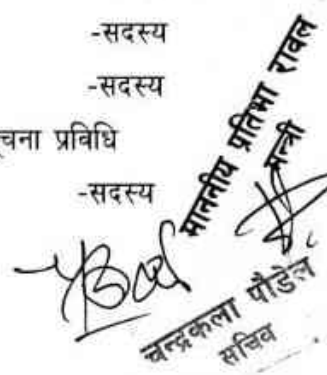 -सदस्य
-सदस्य
चना प्रविधि
-सदस्य
माननीय प्रतिभा रावल
मन्त्री
चन्द्रकला पौडेल
सचिव